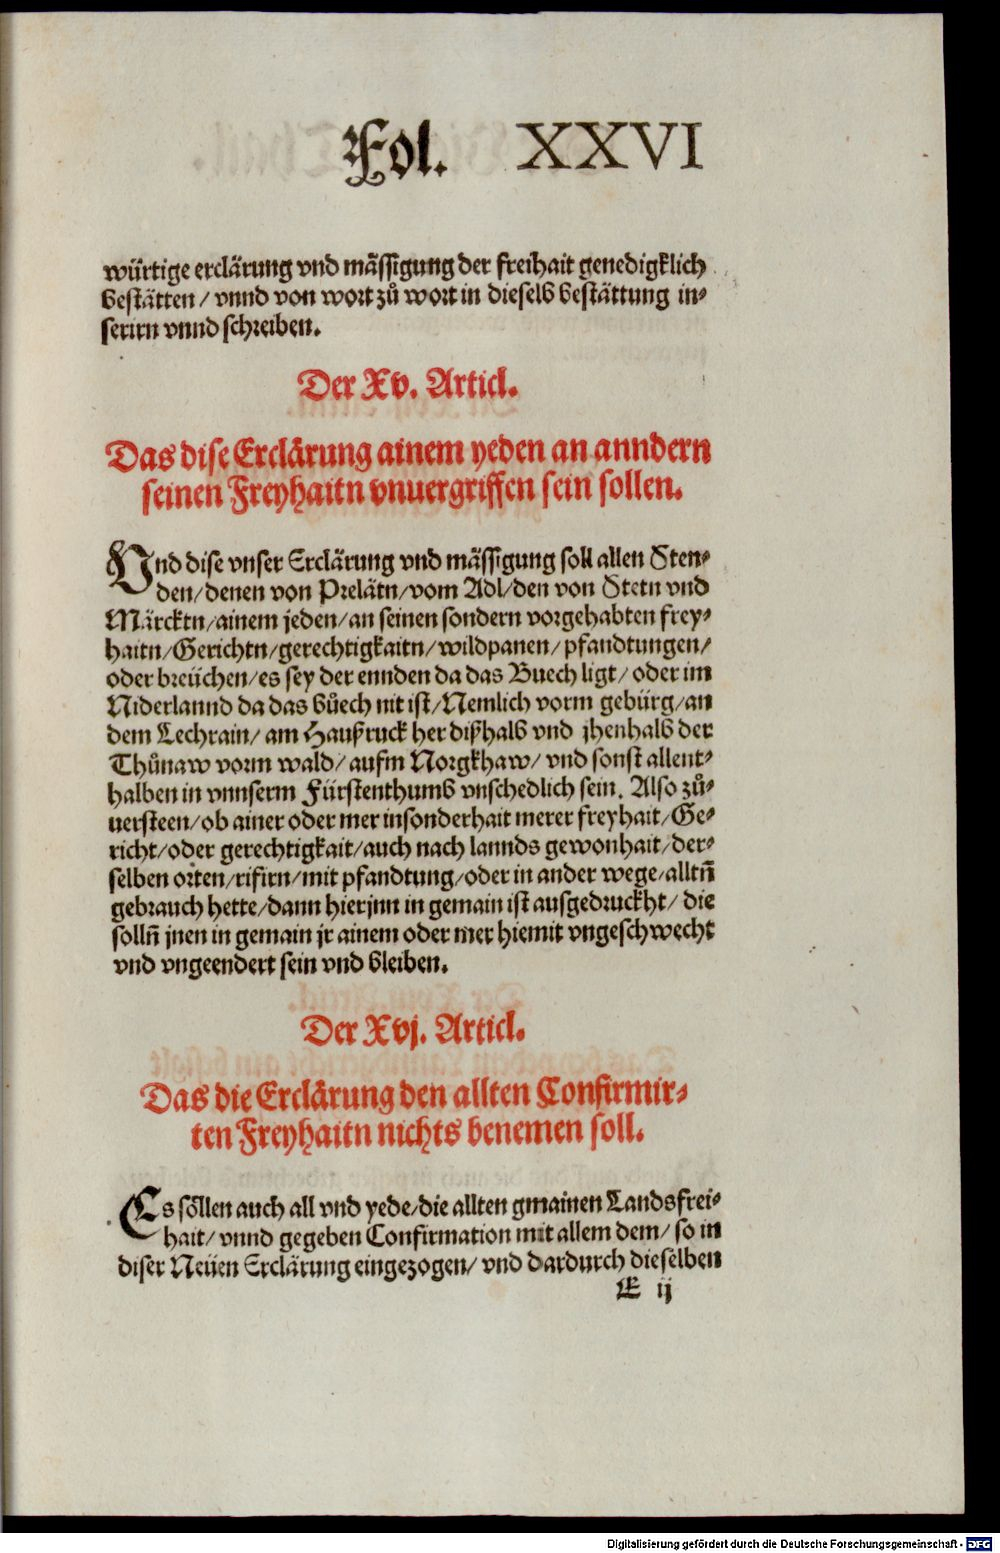 Fol. XXVI
würtige erclärung vnd mässigung der freihait genedigklich
bestätten / vnnd von wort zů wort in dieselb bestättung in-
serirn vnnd schreiben.
Der Xv. Articl.
Das dise Erclärung ainem yeden an anndern
seinen Freyhaitn vnuergriffen sein sollen.
Vnd dise vnser Erclärung vnd mässigung soll allen Sten-
den / denen von Prelätn / vom Adl / den von Stetn vnd
Märcktn / ainem jeden / an seinen sondern vorgehabten frey-
haitn / Gerichtn / gerechtigkaitn / wildpanen / pfandtungen /
oder breüchen / es sey der ennden da das Buech ligt / oder im
Niderlannd da das bůech nit ist / Nemlich vorm gebürg / an
dem Lechrain / am Haußruck her dißhalb vnd jhenhalb der
Thůnaw vorm wald / aufm Norgkhaw / vnd sonst allent-
halben in vnnserm Fürstenthumb vnschedlich sein. Also zů-
uersteen / ob ainer oder mer insonderhait merer freyhait / Ge-
richt / oder gerechtigkait / auch nach lannds gewonhait / der-
selben orten / rifirn / mit pfandtung / oder in ander wege / alltn̄
gebrauch hette / dann hierjnn in gemain ist ausgedruckht / die
solln̄ jnen in gemain jr ainem oder mer hiemit vngeschwecht
vnd vngeendert sein vnd bleiben.
Der Xvj. Articl.
Das die Erclärung den allten Confirmir-
ten Freyhaitn nichts benemen soll.
Es söllen auch all vnd yede / die allten gmainen Landsfrei-
hait / vnnd gegeben Confirmation mit allem dem / so in
diser Neüen Erclärung eingezogen / vnd dardurch dieselben
E ij
Digitalisierung gefördert durch die Deutsche Forschungsgemeinschaft - DFG